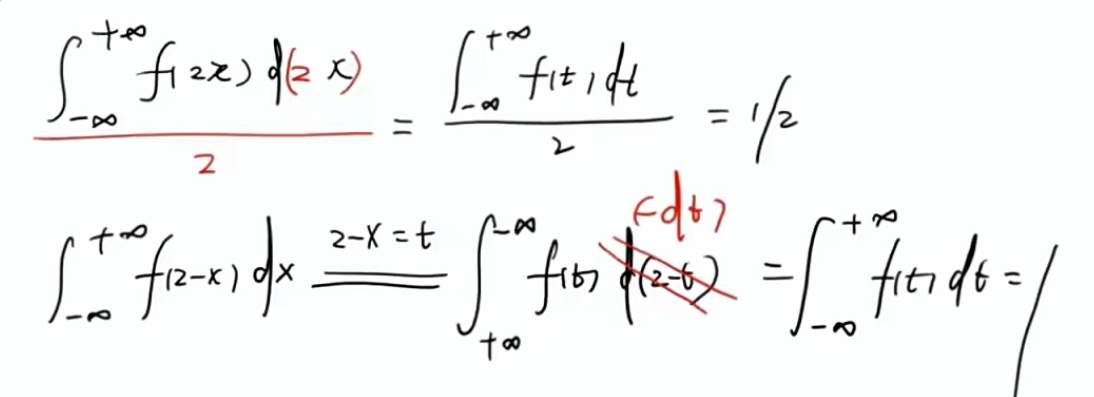 ∫_{-∞}^{+∞} f(2x) d(2x) / 2 = ∫_{-∞}^{+∞} f(t) dt / 2 = 1/2
∫_{-∞}^{+∞} f(2-x) dx \xlongequal{2-x=t} ∫_{+∞}^{-∞} f(t) ~~d(2-t)~~ (-dt) = ∫_{-∞}^{+∞} f(t) dt = 1